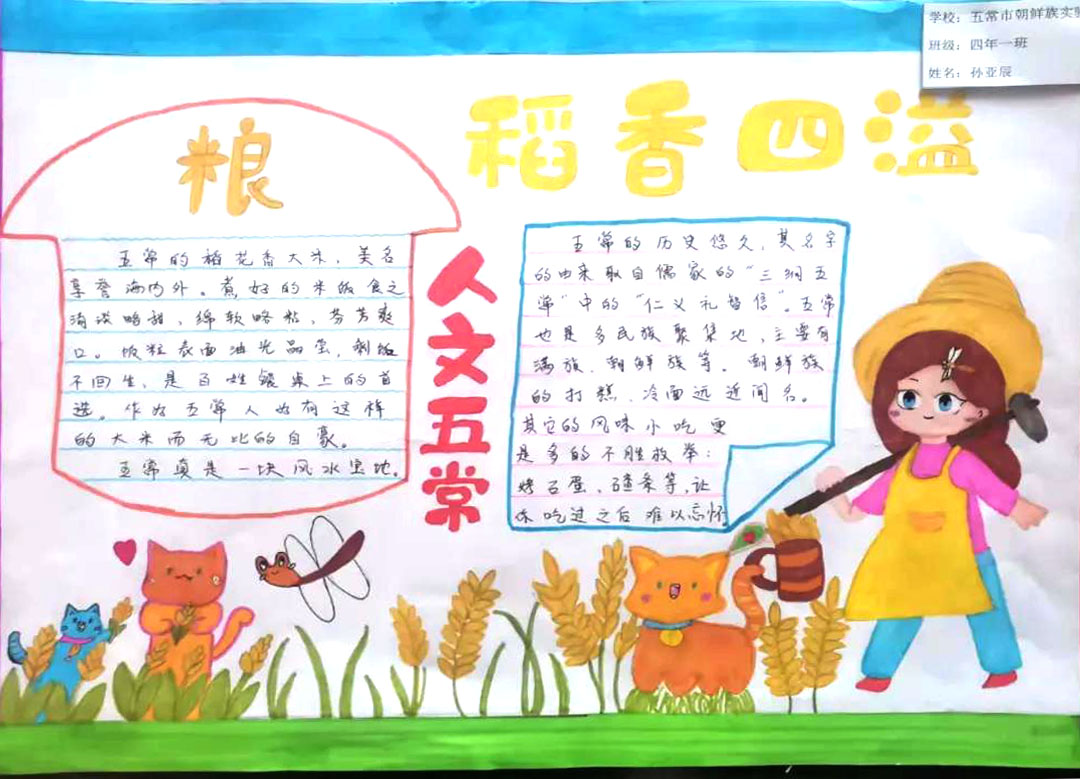 学校：五常市朝鲜族实验
班级：四年一班
姓名：孙亚辰
稻香四溢
粮
五常的稻花香大米，美名
享誉海内外。煮好的米饭食之
清淡略甜、绵软略粘、芬芳爽
口。饭粒表面油光晶莹，剩饭
不回生，是百姓餐桌上的首
选。作为五常人为有这样
的大米而无比的自豪。
五常真是一块风水宝地。
人文五常
五常的历史悠久，其名字
的由来取自儒家的“三纲五
常”中的“仁义礼智信”。五常
也是多民族聚集地，主要有
满族、朝鲜族等。朝鲜族
的打糕、冷面远近闻名。
其它的风味小吃更
是多的不胜枚举：
烤石蛋、碴条等，让
你吃过之后难以忘怀